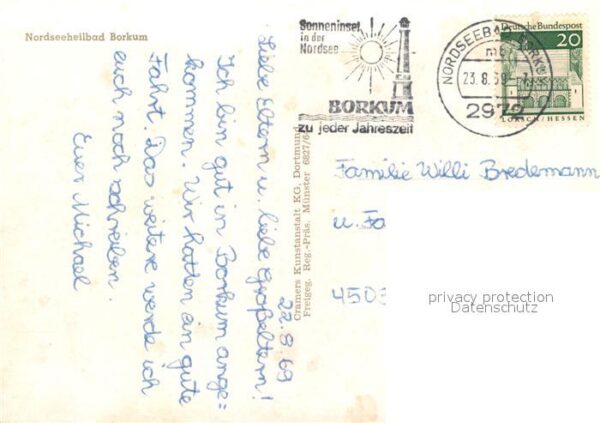 Nordseeheilbad Borkum
22.8.69
Liebe Eltern u. liebe Großeltern!
Ich bin gut in Borkum ange=
kommen. Wir hatten ein gute
Fahrt. Das weitere werde ich
euch noch schreiben.
Euer Michael
Cramers Kunstanstalt KG. Dortmund
Freigeg. Reg.-Präs. Münster 6827/6
Sonneninsel
in der
Nordsee
BORKUM
zu jeder Jahreszeit
NORDSEEBAD BORKUM
23.8.69
2972
Deutsche Bundespost
20
LORSCH/HESSEN
Familie Willi Bredemann
u. Fa
4503
privacy protection
Datenschutz